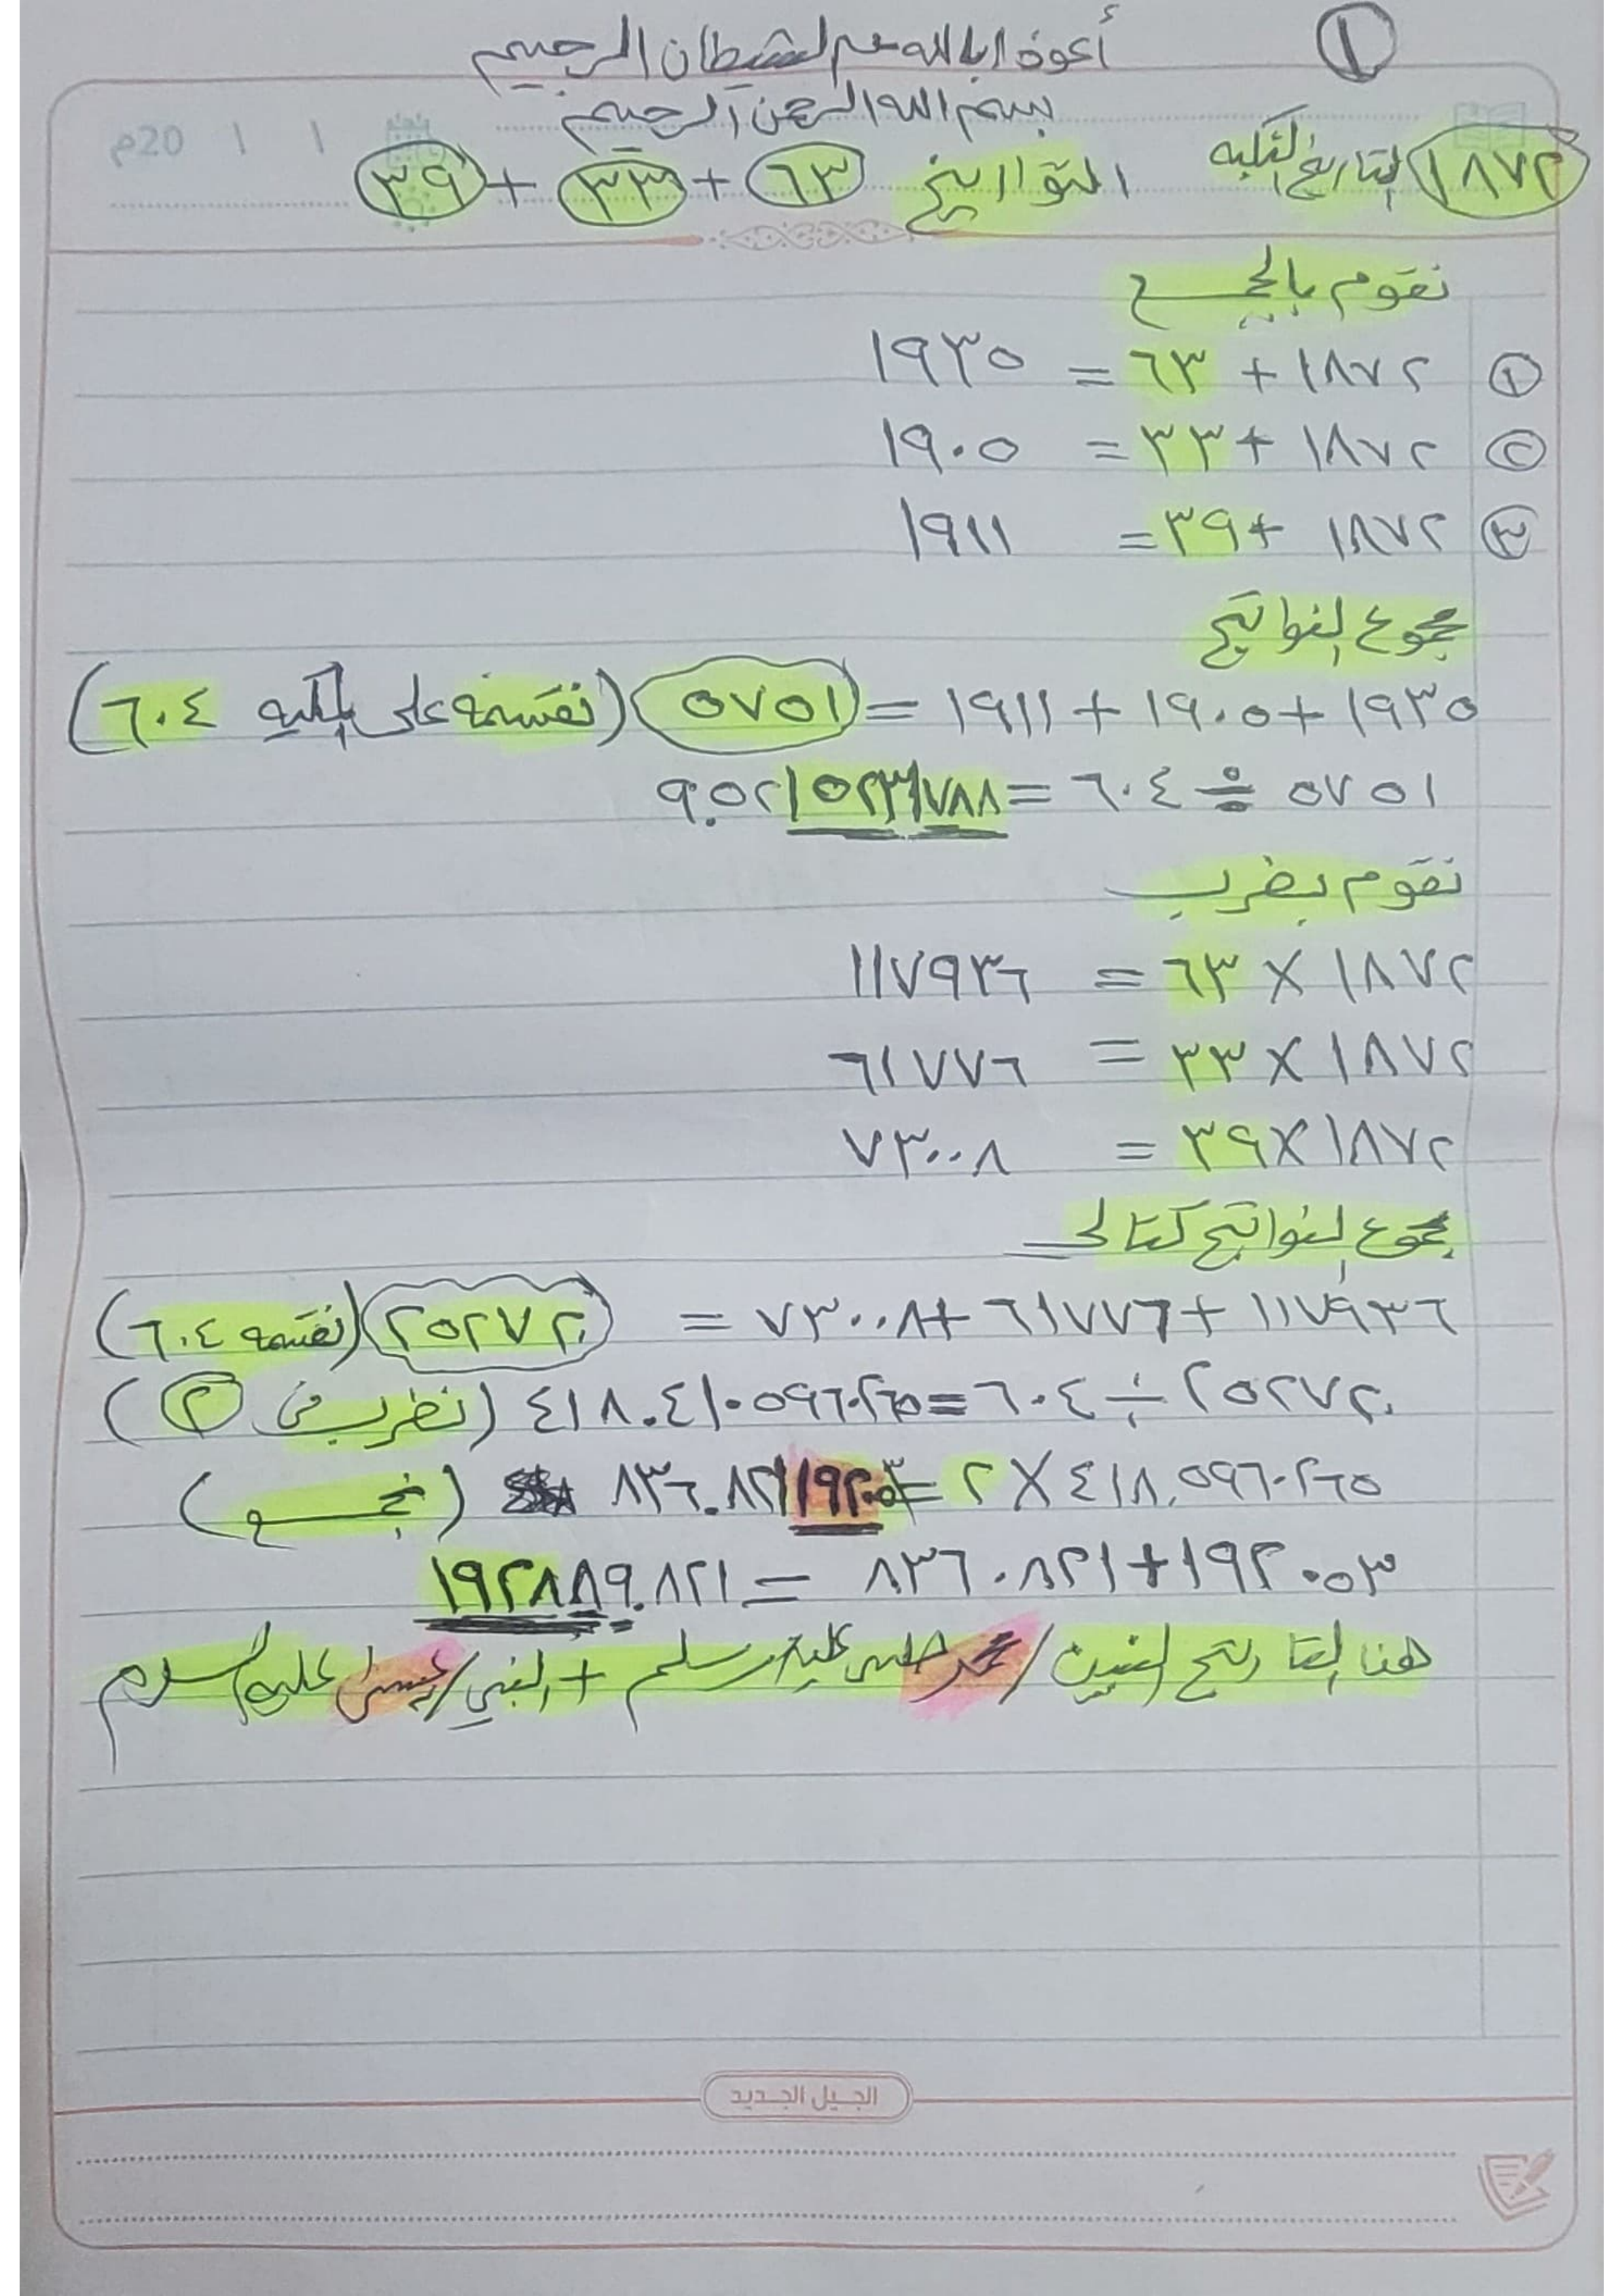 ١
أعوذ بالله من الشيطان الرجيم
بسم الله الرحمن الرحيم
20م / /
١٨٧٢ التاريخ التواريخ ٦٣ + ٣٣ + ٣٩
نقوم بالجمع
١ ١٨٧٢ + ٦٣ = ١٩٣٥
٢ ١٨٧٢ + ٣٣ = ١٩٠٥
٣ ١٨٧٢ + ٣٩ = ١٩١١
مجموع النواتج
١٩٣٥ + ١٩٠٥ + ١٩١١ = ٥٧٥١ (نقسمه على ٦٠٤)
٥٧٥١ ÷ ٦٠٤ = ٩.٥٢١٥٢٣١٧٨٨
نقوم بضرب
١٨٧٢ × ٦٣ = ١١٧٩٣٦
١٨٧٢ × ٣٣ = ٦١٧٧٦
١٨٧٢ × ٣٩ = ٧٣٠٠٨
مجموع النواتج كتالي
١١٧٩٣٦ + ٦١٧٧٦ + ٧٣٠٠٨ = ٢٥٢٧٢٠ (نقسمه ٦٠٤)
٢٥٢٧٢٠ ÷ ٦٠٤ = ٤١٨.٤١٠٥٩٦٠٢٦٥ (نضرب في ٢)
٤١٨.٥٩٦٠٢٦٥ × ٢ = ٨٣٦.٨٢١١٩٢٠٥٣ (نجمع)
٨٣٦.٨٢١ + ١٩٢٠٥٣ = ١٩٢٨٨٩.٨٢١
هنا النبيين / محمد صلى عليه وسلم + النبي / عيسى عليه السلام
الجيل الجديد